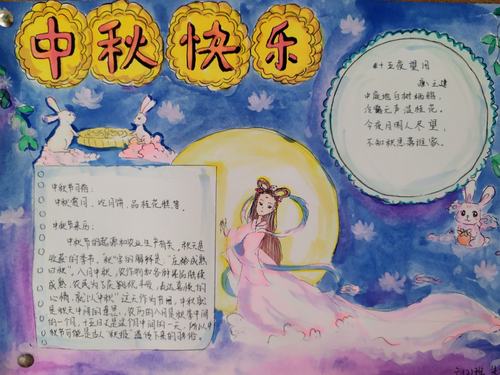 中秋快乐
十五夜望月
唐 王建
中庭地白树栖鸦，
冷露无声湿桂花。
今夜月明人尽望，
不知秋思落谁家。
中秋节习俗：
中秋赏月、吃月饼、品桂花糕等。
中秋节来历：
中秋节的起源和农业生产有关，秋天是
收获的季节。"秋"字的解释是："庄稼成熟
曰秋"。八月中秋，农作物和各种果品陆续
成熟，农民为了庆祝丰收，表达喜悦的
心情，就以"中秋"这天作为节日。中秋就
是秋天中间的意思，农历的八月是秋季中间
的一个月，十五日又是这个月中间的一天，所以中
秋节可能是古人"秋报"遗传下来的